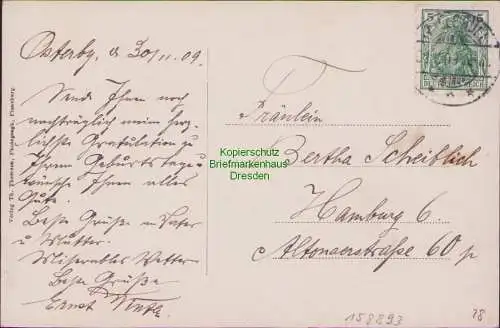 Osterby, d 30/11 09.
Sende Ihnen noch
nachträglich meine herz-
lichste Gratulation zu
Ihrem Geburtstage u.
wünsche Ihnen alles
Gute.
Beste Grüße an Vater
u Mutter.
Miserables Wetter
Beste Grüße
Ernst
Verlag Th. Thomsen, Photograph, Flensburg.
5 5
Fräulein
Bertha Scheiblich
Hamburg 6.
Altonaerstraße 60 p
Kopierschutz
Briefmarkenhaus
Dresden
158893
28